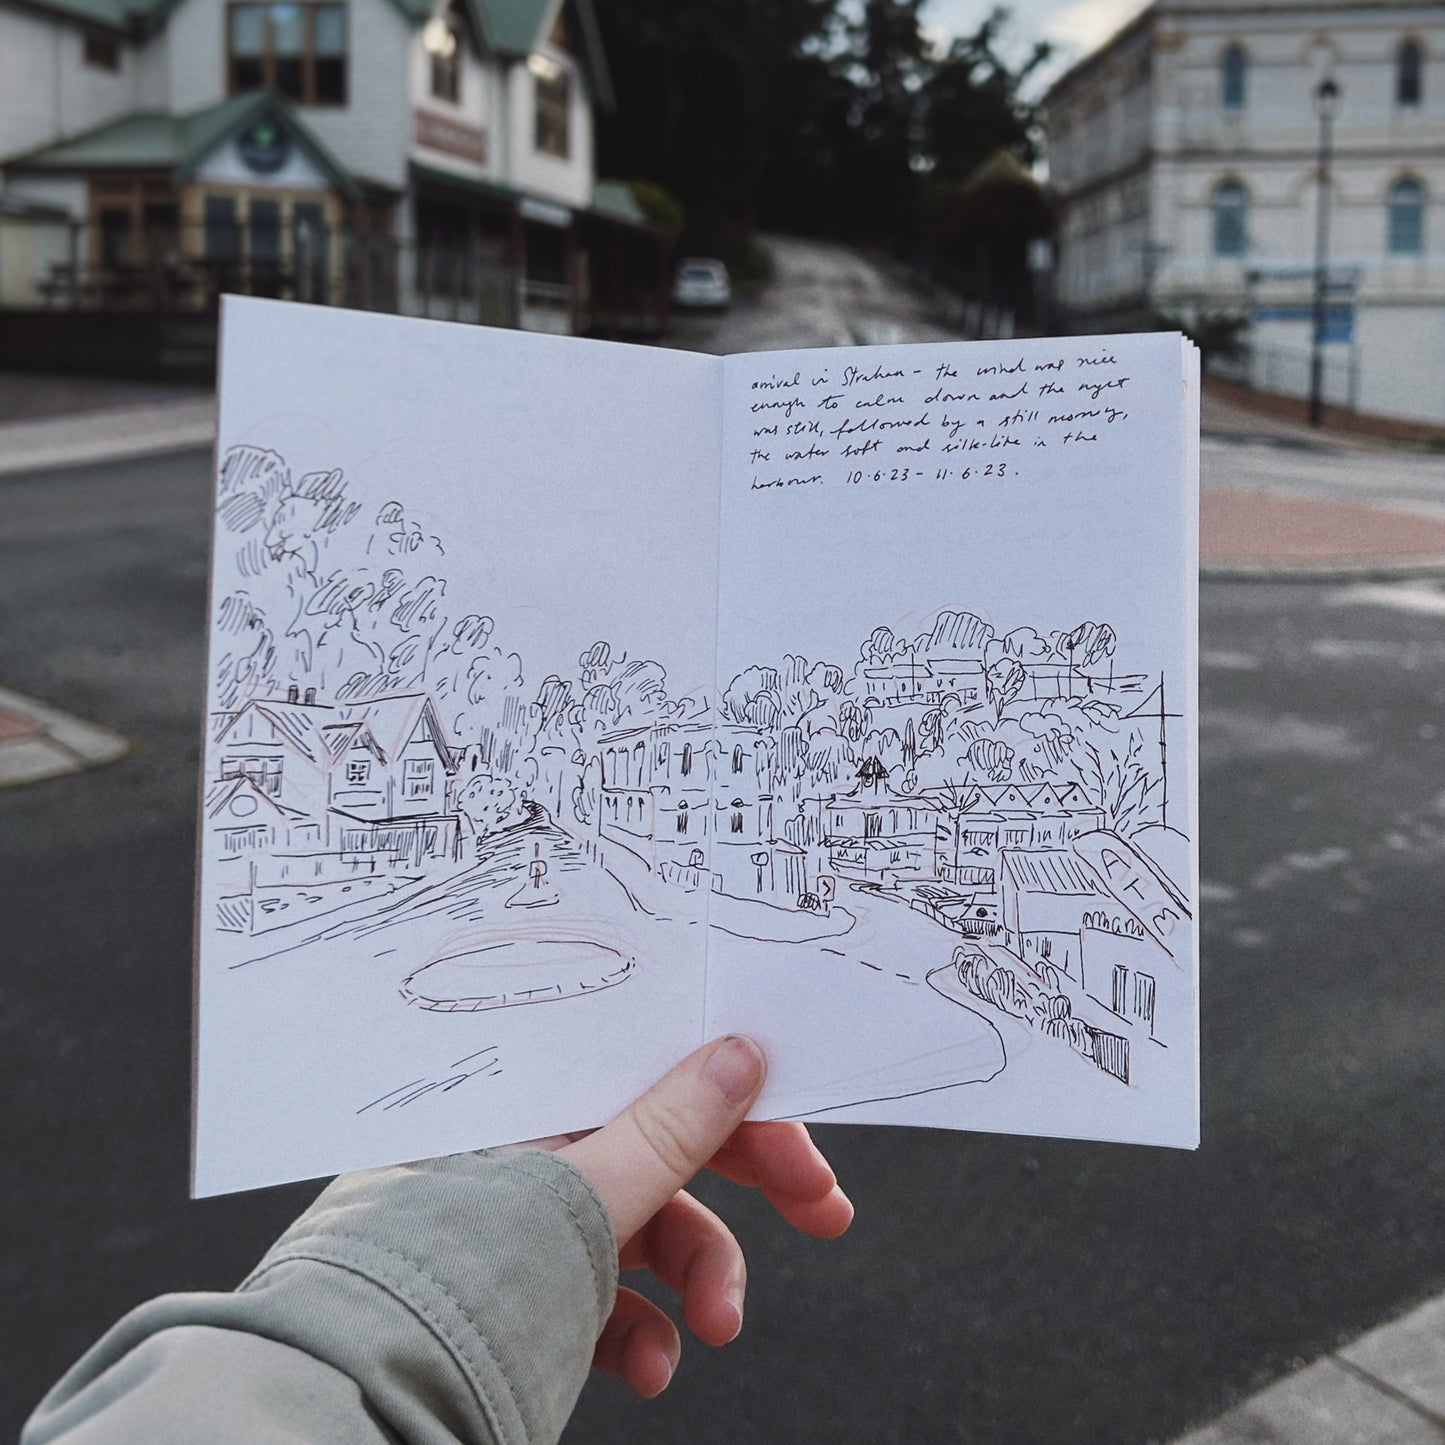 arrival in Strahan – the wind was nice
enough to calm down and the night
was still, followed by a still morning,
the water soft and silk-like in the
harbour. 10·6·23 – 11·6·23.
ATM